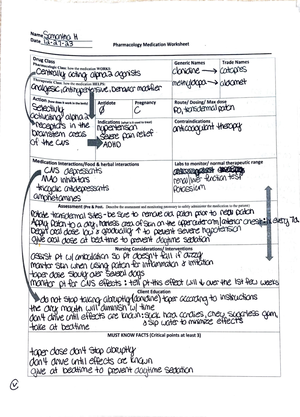 Name Samantha H
Date 12-27-23
Pharmacology Medication Worksheet
Drug Class
Pharmacologic Class: how the medication WORKS
Centrally acting alpha 2 agonists
Therapeutic Class: how the medication HELPS
analgesic, antihypertensive, behavior modifier
Generic Names
clonidine
methyldopa
Trade Names
catapres
aldomet
Action
selectively
activating alpha 2
receptors in the
brainstem areas
of the CNS
Antidote
Ø
Pregnancy
C
Indications
hypertension
severe pain relief
ADHD
Route/ Dosing/ Max dose
PO, transdermal patch
Contraindications
anticoagulant therapy
Medication Interactions/Food & herbal interactions
CNS depressants
MAO inhibitors
tricyclic antidepressants
amphetamines
Labs to monitor/ normal therapeutic range
renal/liver function tests
potassium
Assessment (Pre & Post.
Rotate transdermal sites - be sure to remove old patch prior to new patch
Apply patch to a dry, hairless area of skin on the upper outer arm/lateral chest every 7 days
Begin oral dose low & gradually ↑ to prevent severe hypotension
give oral dose at bedtime to prevent daytime sedation
Nursing Considerations/ Interventions
assist pt w/ ambulation so pt doesn't fall if dizzy
monitor skin when using patch for inflammation & irritation
taper dose slowly over several days
monitor pt for CNS effects : tell pt this effect will ↓ over the 1st few weeks
Client Education
do not stop taking abruptly (clonidine) taper according to instructions
the dry mouth will diminish w/ time
don't drive until effects are known : suck hard candies, chew sugarless gum,
take at bedtime & sip water to minimize effects
MUST KNOW FACTS (Critical points at least 3)
taper dose don't stop abruptly
don't drive until effects are known
give at bedtime to prevent daytime sedation